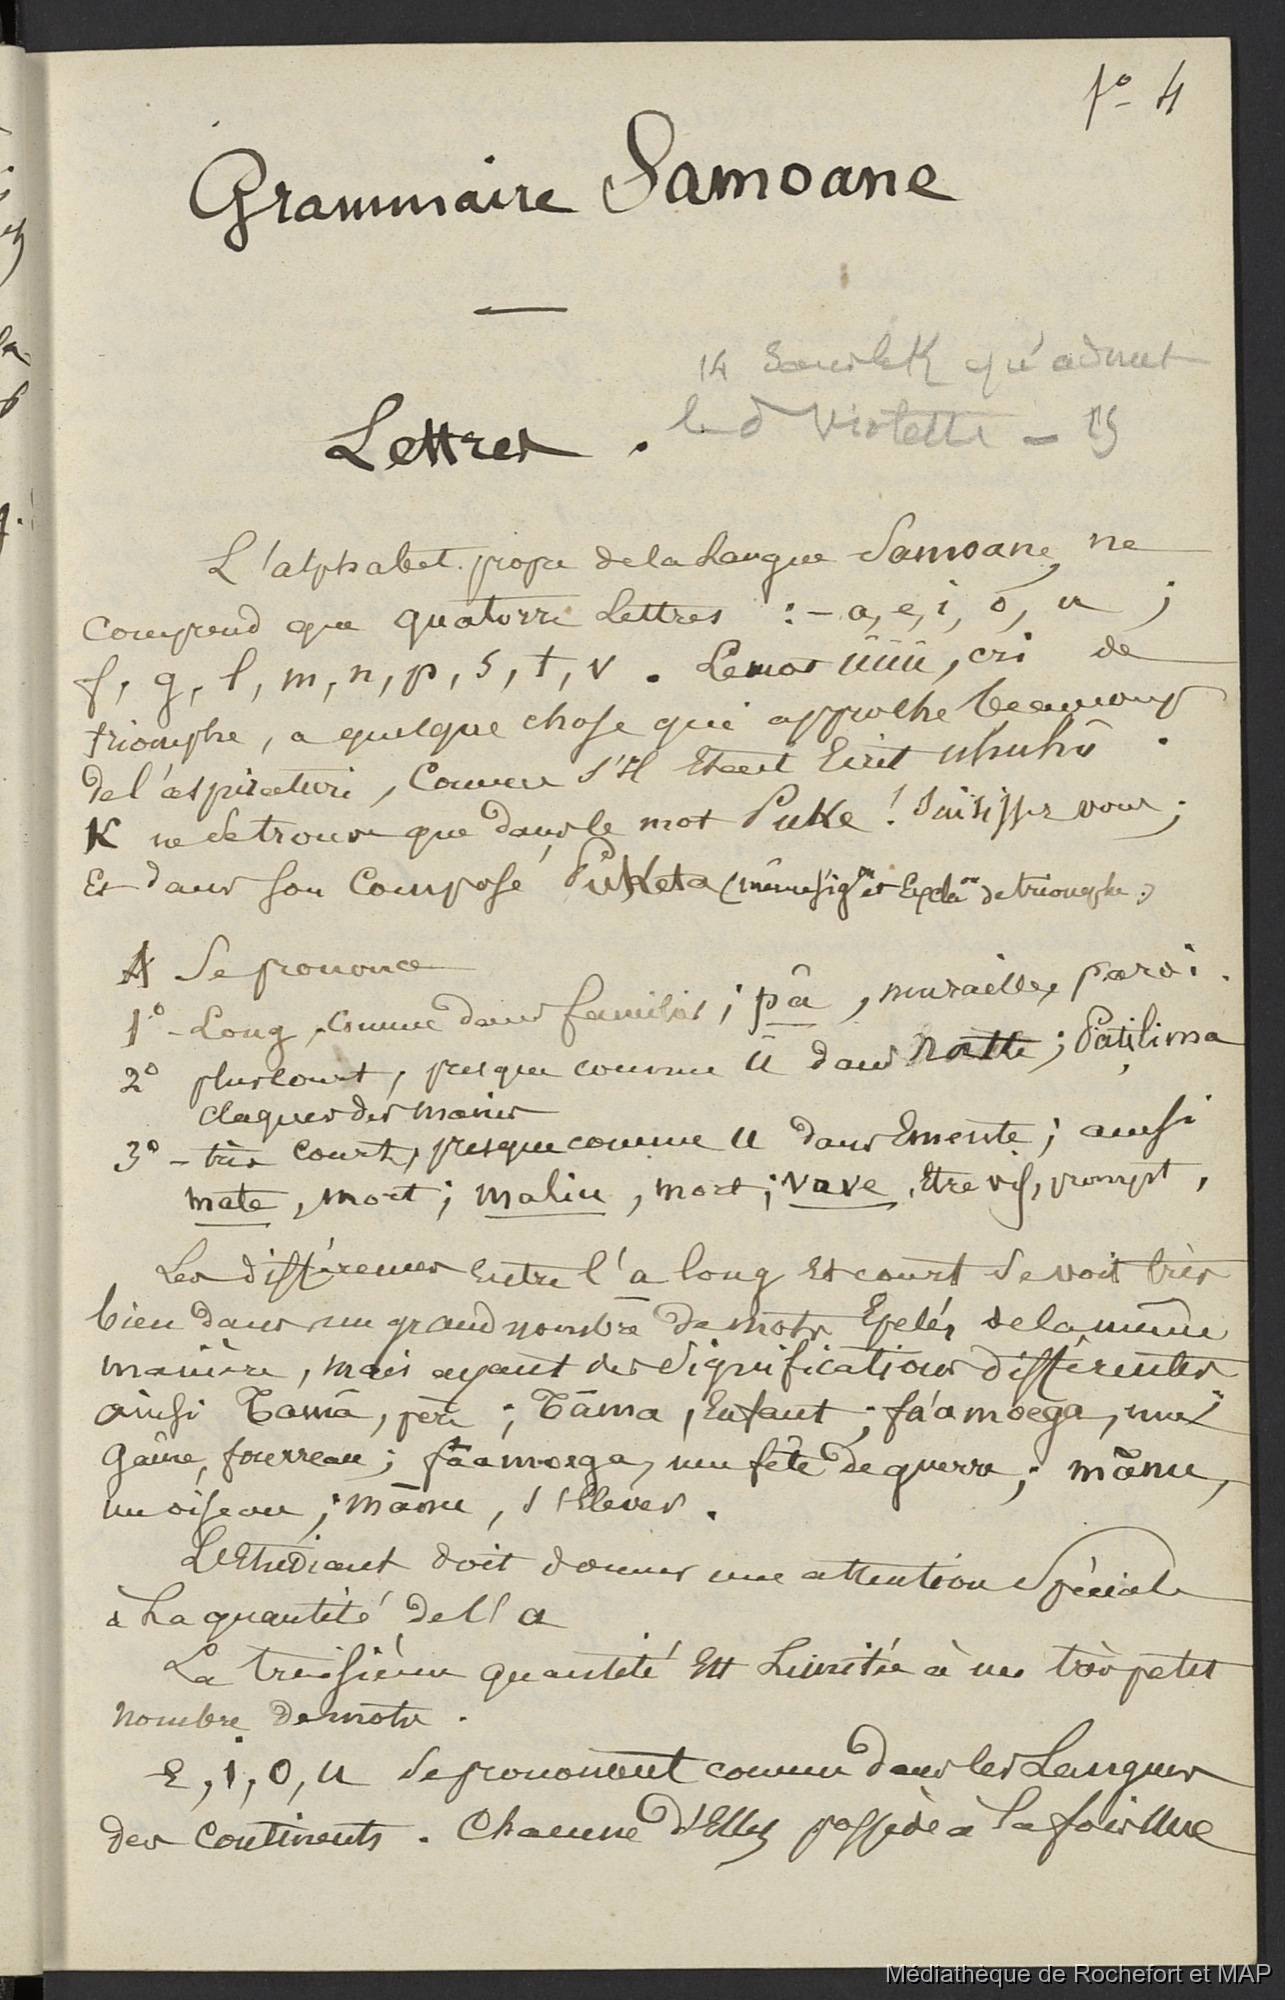 fo 4
Grammaire Samoane
14 sans le K qu'admet
le d Violette - 15
Lettres .
L'alphabet propre de la Langue Samoane, ne
comprend que quatorze Lettres : - a, e, i, o, u ;
f, g, l, m, n, p, s, t, v . Le mot ūūū, cri de
triomphe, a quelque chose qui approche beaucoup
de l'aspiration, comme s'il Etait Ecrit uhuhū .
K ne se trouve que dans le mot Puke ! Saisissez vous ;
Et dans son composé Pūketa (même sigon et Exclaon de triomphe.)
A Se prononce
1o - Long, comme dans familier ; pâ, muraille, paroi .
2o plus court, presque comme U dans ; Patilima
claquer des mains
3o - très court, presque comme u dans ; ainsi
mate, mort ; maliu, mort ; vave, Etre vif, prompt,
Les différences Entre l'a long Et court se voit très
bien dans un grand nombre de mots Epelés de la même
manière, mais ayant des significations différentes
ainsi Tamā, père ; Tāma, Enfant ; fa'amoega, une
Gaîne, fourreau ; fāamoega, une fête de guerre ; mānu,
un oiseau ; mānu, s'Elever .
L'Etudiant doit donner une attention Spéciale
à La quantité de l'a
La troisième quantité Est Limitée à un très petit
nombre de mots .
E, i, O, U se prononcent comme dans les Langues
des continents . Chacune d'Elles possède à la fois Une
Médiathèque de Rochefort et MAP